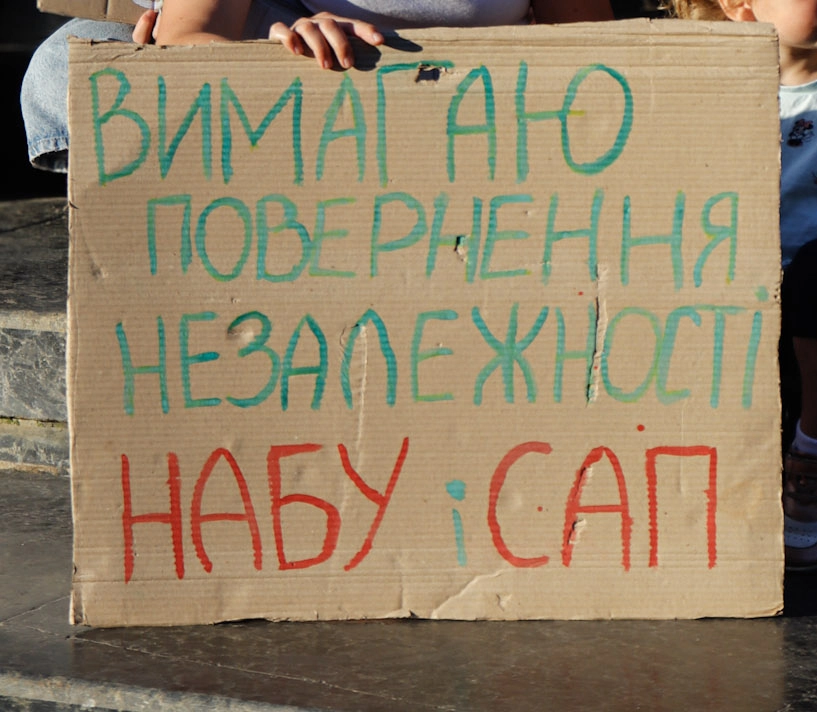 ВИМАГАЮ
ПОВЕРНЕННЯ
НЕЗАЛЕЖНОСТІ
НАБУ і САП